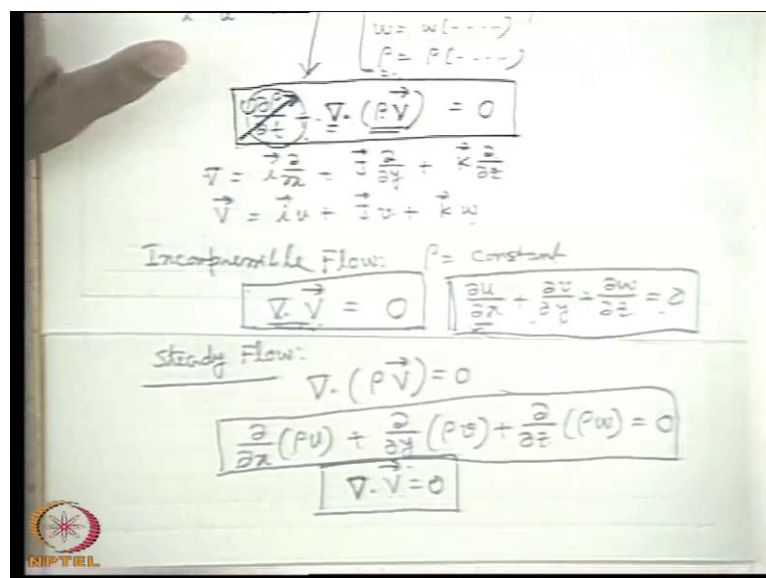 w = w(----)
ρ = ρ(----)
∂ρ/∂t + ∇·(ρV⃗) = 0
∇ = i⃗ ∂/∂x + j⃗ ∂/∂y + k⃗ ∂/∂z
V⃗ = i⃗u + j⃗v + k⃗w
Incompressible Flow: ρ = constant
∇·V⃗ = 0 ∂u/∂x + ∂v/∂y + ∂w/∂z = 0
Steady Flow:
∇·(ρV⃗) = 0
∂/∂x (ρu) + ∂/∂y (ρv) + ∂/∂z (ρw) = 0
∇·V⃗ = 0
NPTEL